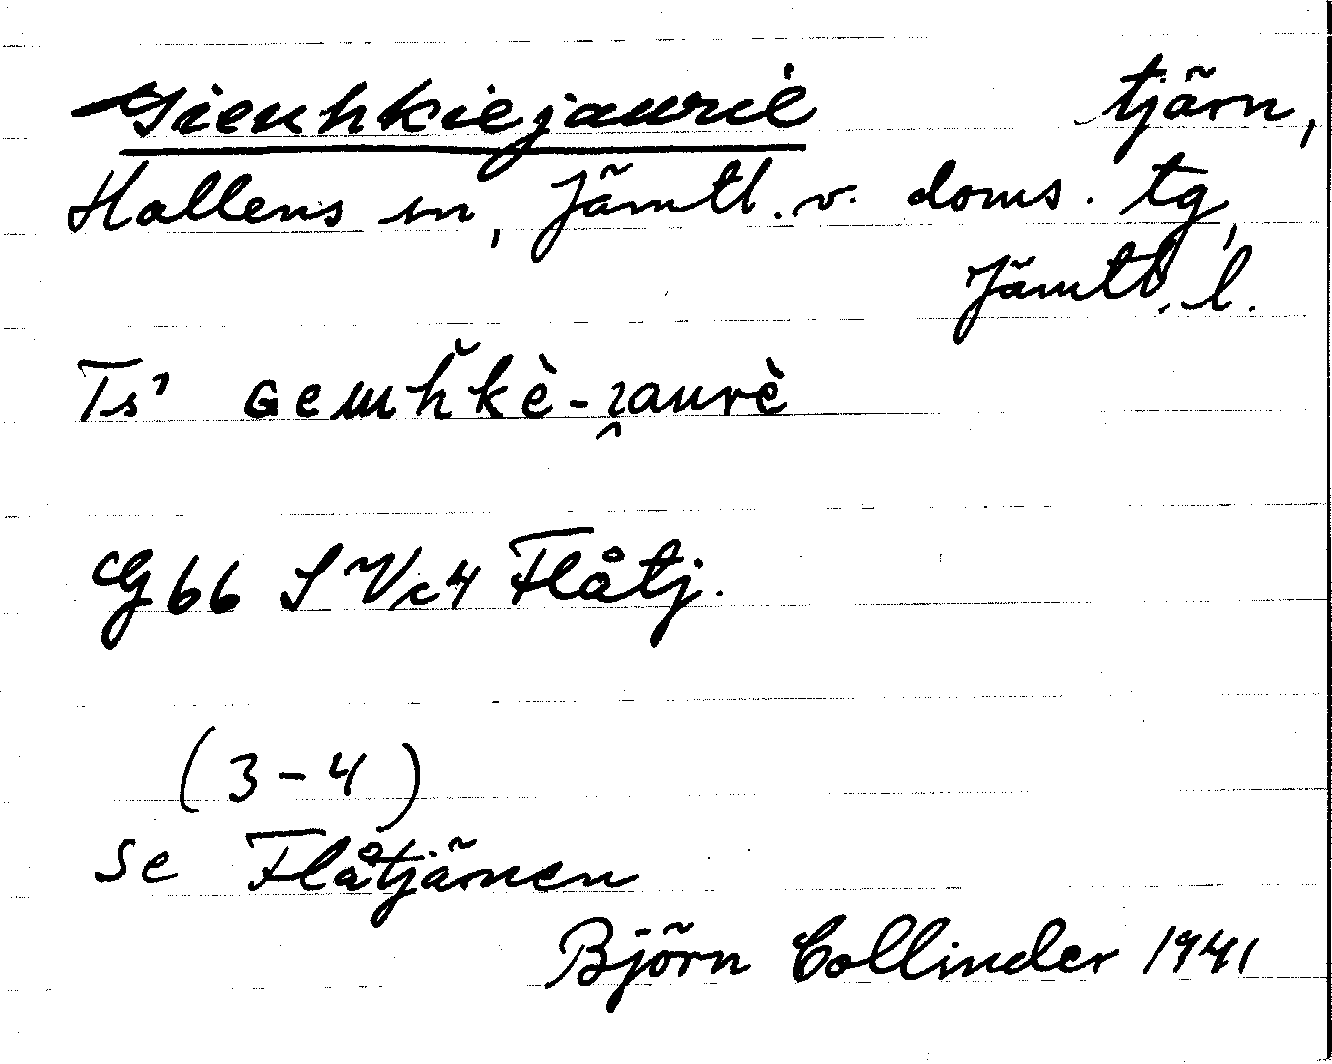 Gieuhkiejaurie tjärn,
Hallens sn, Jämtl. v. doms. tg,
Jämtl. l.
Ts' Geɯȟkè-ʒ̭aurè
G 66 S Vc4 Flåtj.
(3-4)
Se Flåtjärnen
Björn Collinder 1941